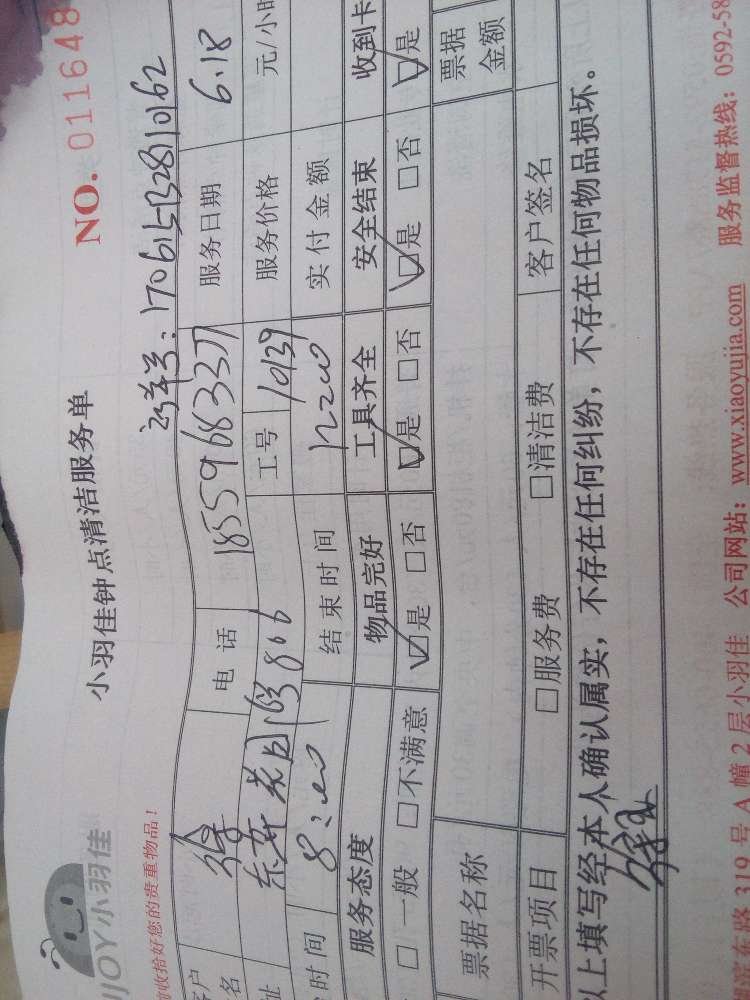 NO.011648
小羽佳钟点清洁服务单
JOY小羽佳
收拾好您的贵重物品!
订单号:170615132810162
客户
名 徐 电话 18559683371 服务日期 6.18
址 东 花园 163 806 工号 10139 服务价格 元/小时
时间 8:00 结束时间 12:00 实付金额
服务态度 物品完好 工具齐全 安全结束 收到卡
□一般 □不满意 □是 □否 □是 □否 □是 □否 □是
票据名称 票据
金额
开票项目 □服务费 □清洁费 客户签名
以上填写经本人确认属实,不存在任何纠纷,不存在任何物品损坏。
滨东路 319 号 A 幢 2 层小羽佳 公司网站:www.xiaoyujia.com 服务监督热线:0592-58